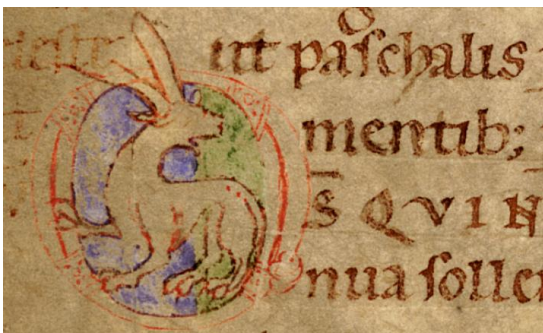 ut paſchalis
mentib;
D̅S QVI N
nua ſolle